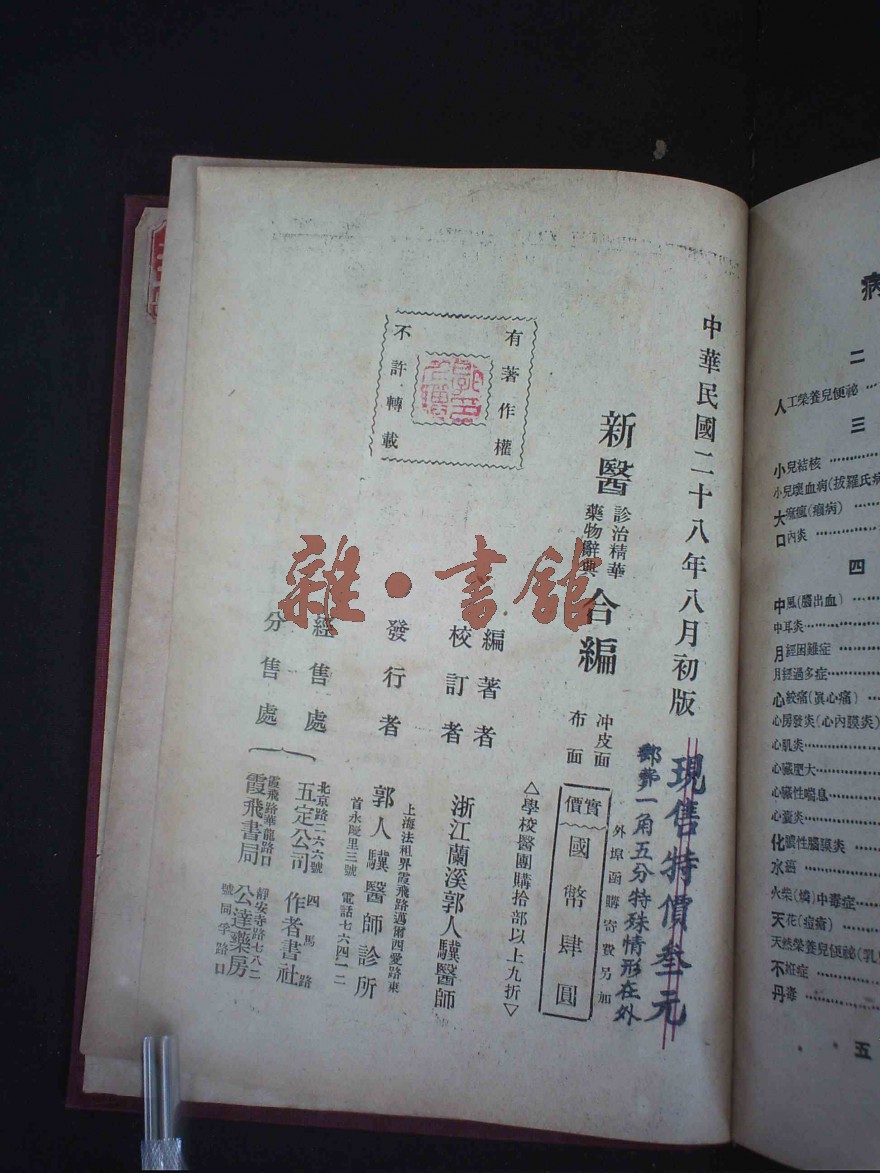 中華民國二十八年八月初版
現售特價叁元
郵費一角五分特殊情形在外
新醫診治精華藥物辭典合編
冲皮面
布面
實價國幣肆圓
外埠函購寄費另加
△學校醫團購拾部以上九折▽
有著作權
不許轉載
編著者
校訂者
浙江蘭溪郭人驥醫師
發行者
上海法租界霞飛路邁爾西愛路東
郭人驥醫師診所
首永里三號 電話七六四一二
經售處
北京路二六六號
五定公司
四馬路
作者書社
分售處
霞飛路華龍路口
霞飛書局
靜安寺路七八二
公達藥房
號同孚路口
雜·書館
病
二
人工榮養兒便祕
三
小兒結核
小兒壞血病(拔羅氏病
大痲瘋(癩病)
口內炎
四
中風(腦出血)
中耳炎
月經困難症
月經過多症
心絞痛(眞心痛)
心房發炎(心內膜炎)
心肌炎
心臟肥大
心臟性喘息
心囊炎
化膿性腦膜炎
水癌
火柴(燐)中毒症
天花(痘瘡)
天然榮養兒便祕(乳
不姙症
丹毒
五